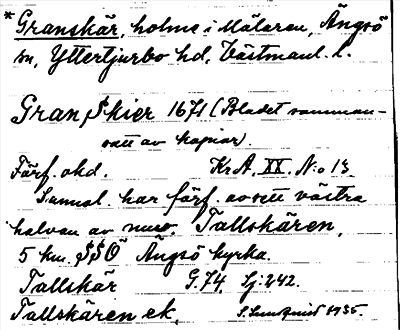 * Granskär, holme i Mälaren, Ängsö
sn, Yttertjurbo hd, Västmanl. l.
Gran Skier 1671 (Bladet samman-
satt av kopior).
Förf. okd. KrA. XX. N:o 13.
Sannol. har förf. avsett västra
halvan av nuv. Tallskären,
5 km. SSO Ängsö kyrka.
Tallskär G.74. Lj:242.
Tallskären ek. S. Lundquist 1935.